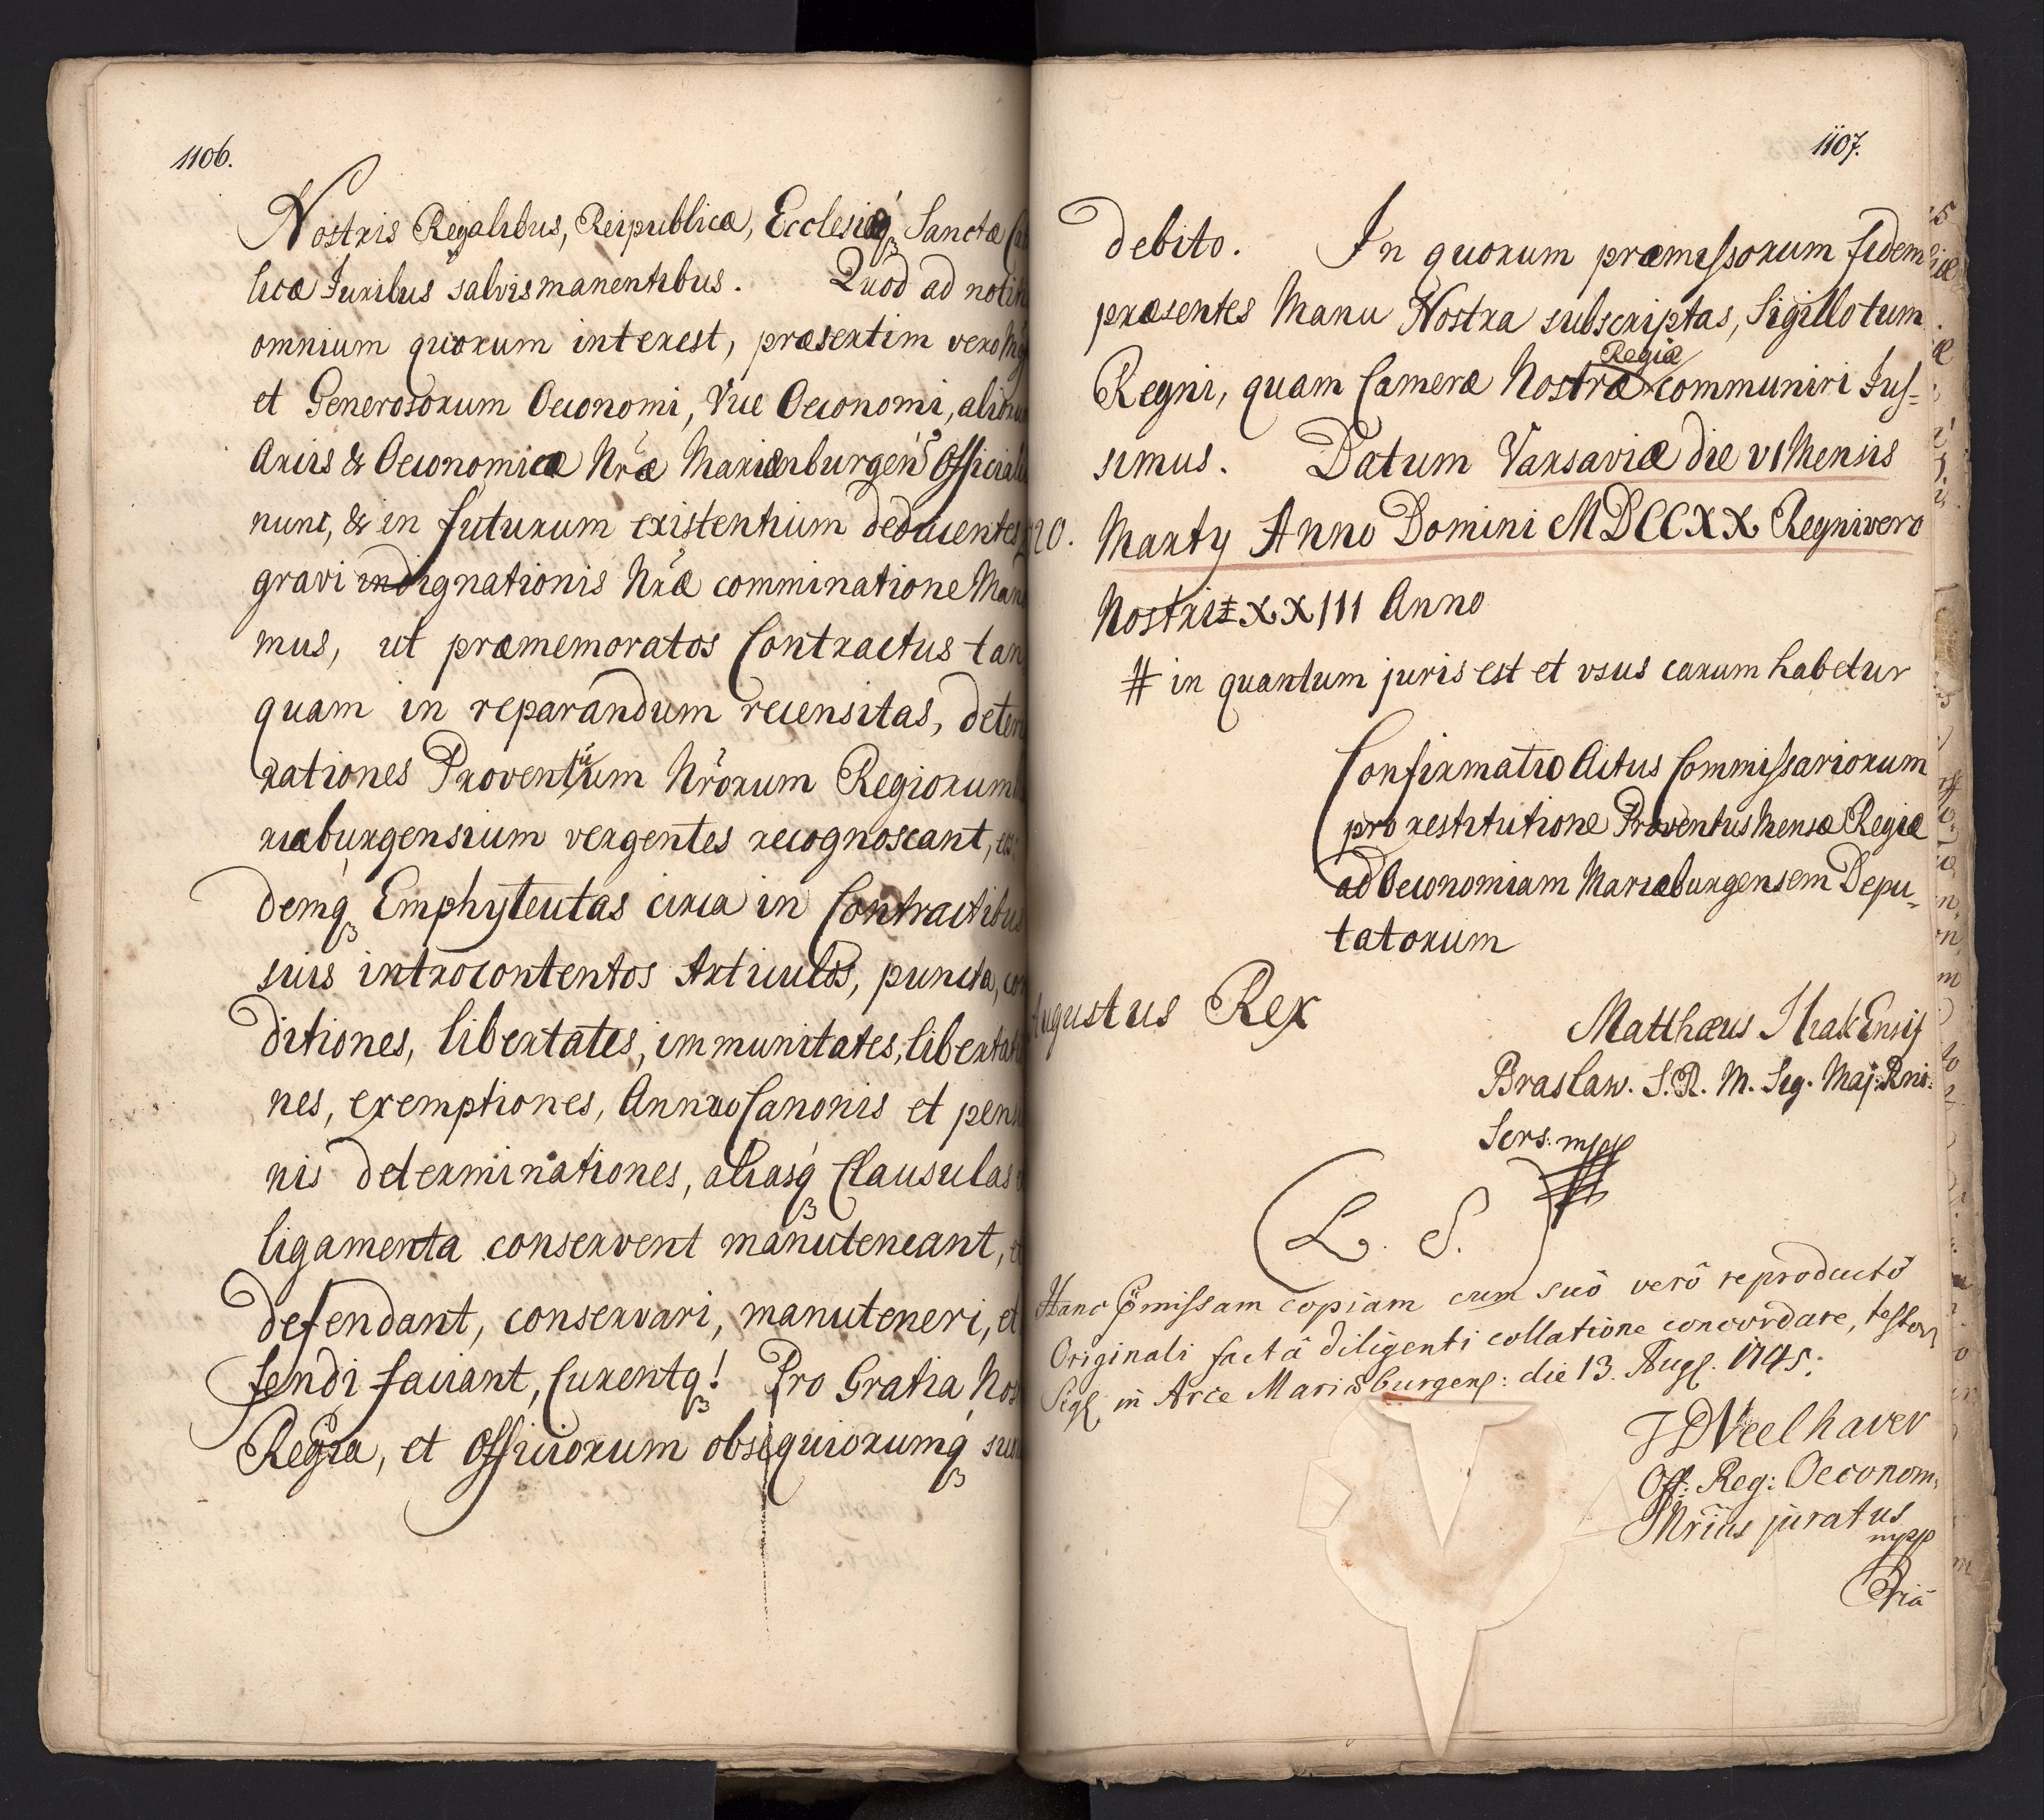 1106.
Nostris Regalibus, Reipublicæ, Ecclesiæq́ Sanctæ
licæ Juribus salvis manentibus. Quod ad
omnium quorum interest, præsertim vero
et Generosorum Oeconomi, Vice Oeconomi,
Arcis & Oeconomiæ Nræ Marienburgen
nunc, & in futurum existentium deducentes
gravi indignationis Nræ comminatione
mus, ut præmemoratos Contractus tan
quam in reparandum recensitas,
rationes Proventuum Nrorum Regiorum
riæburgensium vergentes recognoscant,
demq́ Emphyteutas circa in Contractibus
suis introcontentos Articulos, puncta, con
ditiones, libertates, immunitates,
nes, exemptiones, Annuo Canonis et
nis determinationes, aliasq́ Clausulas
ligamenta conservent manuteneant,
defendant, conservari, manuteneri, et
fendi faciant, Curentq! Pro Gratia
Regia, et Officiorum obsequiorumq́
1107.
debito. In quorum præmissorum fidem
præsentes Manu Nostra subscriptas, Sigillo tum
Regiæ
Regni, quam Cameræ Nostræ communiri Jus=
simus. Datum Varsaviæ die VI Mensis
Marty Anno Domini MDCCXX Regni vero
Nostri ‡ XXIII Anno
# in quantum juris est et vsus earum habetur
Confirmatio Actus Commissariorum
pro restitutione Proventus Mensæ Regiæ
ad Oeconomiam Mariæburgensem Depu,,
tatorum
Augustus Rex
Matthæus Ensif
Braslaw. S. R. M. Sig. Maj: Rni.
Sers: mpp
(L. S.)
Hanc pmissam copiam cum suô verô reproductô
Originali factâ diligenti collatione concordare, testor
Sigl in Arce Mariæburgens: die 13. Augs. 1745.
Off: Reg: Oeconom:
Nrius juratus
mpp